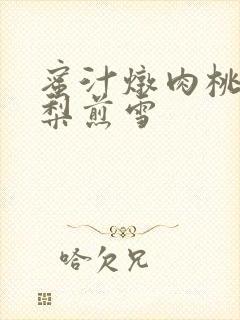 蜜汁燉肉桃
梨煎雪
哈欠兄